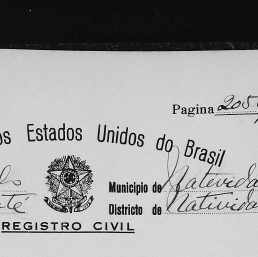 Pagina 205
os Estados Unidos do Brasil
Municipio de Natevida
Districto de Natividad
REGISTRO CIVIL